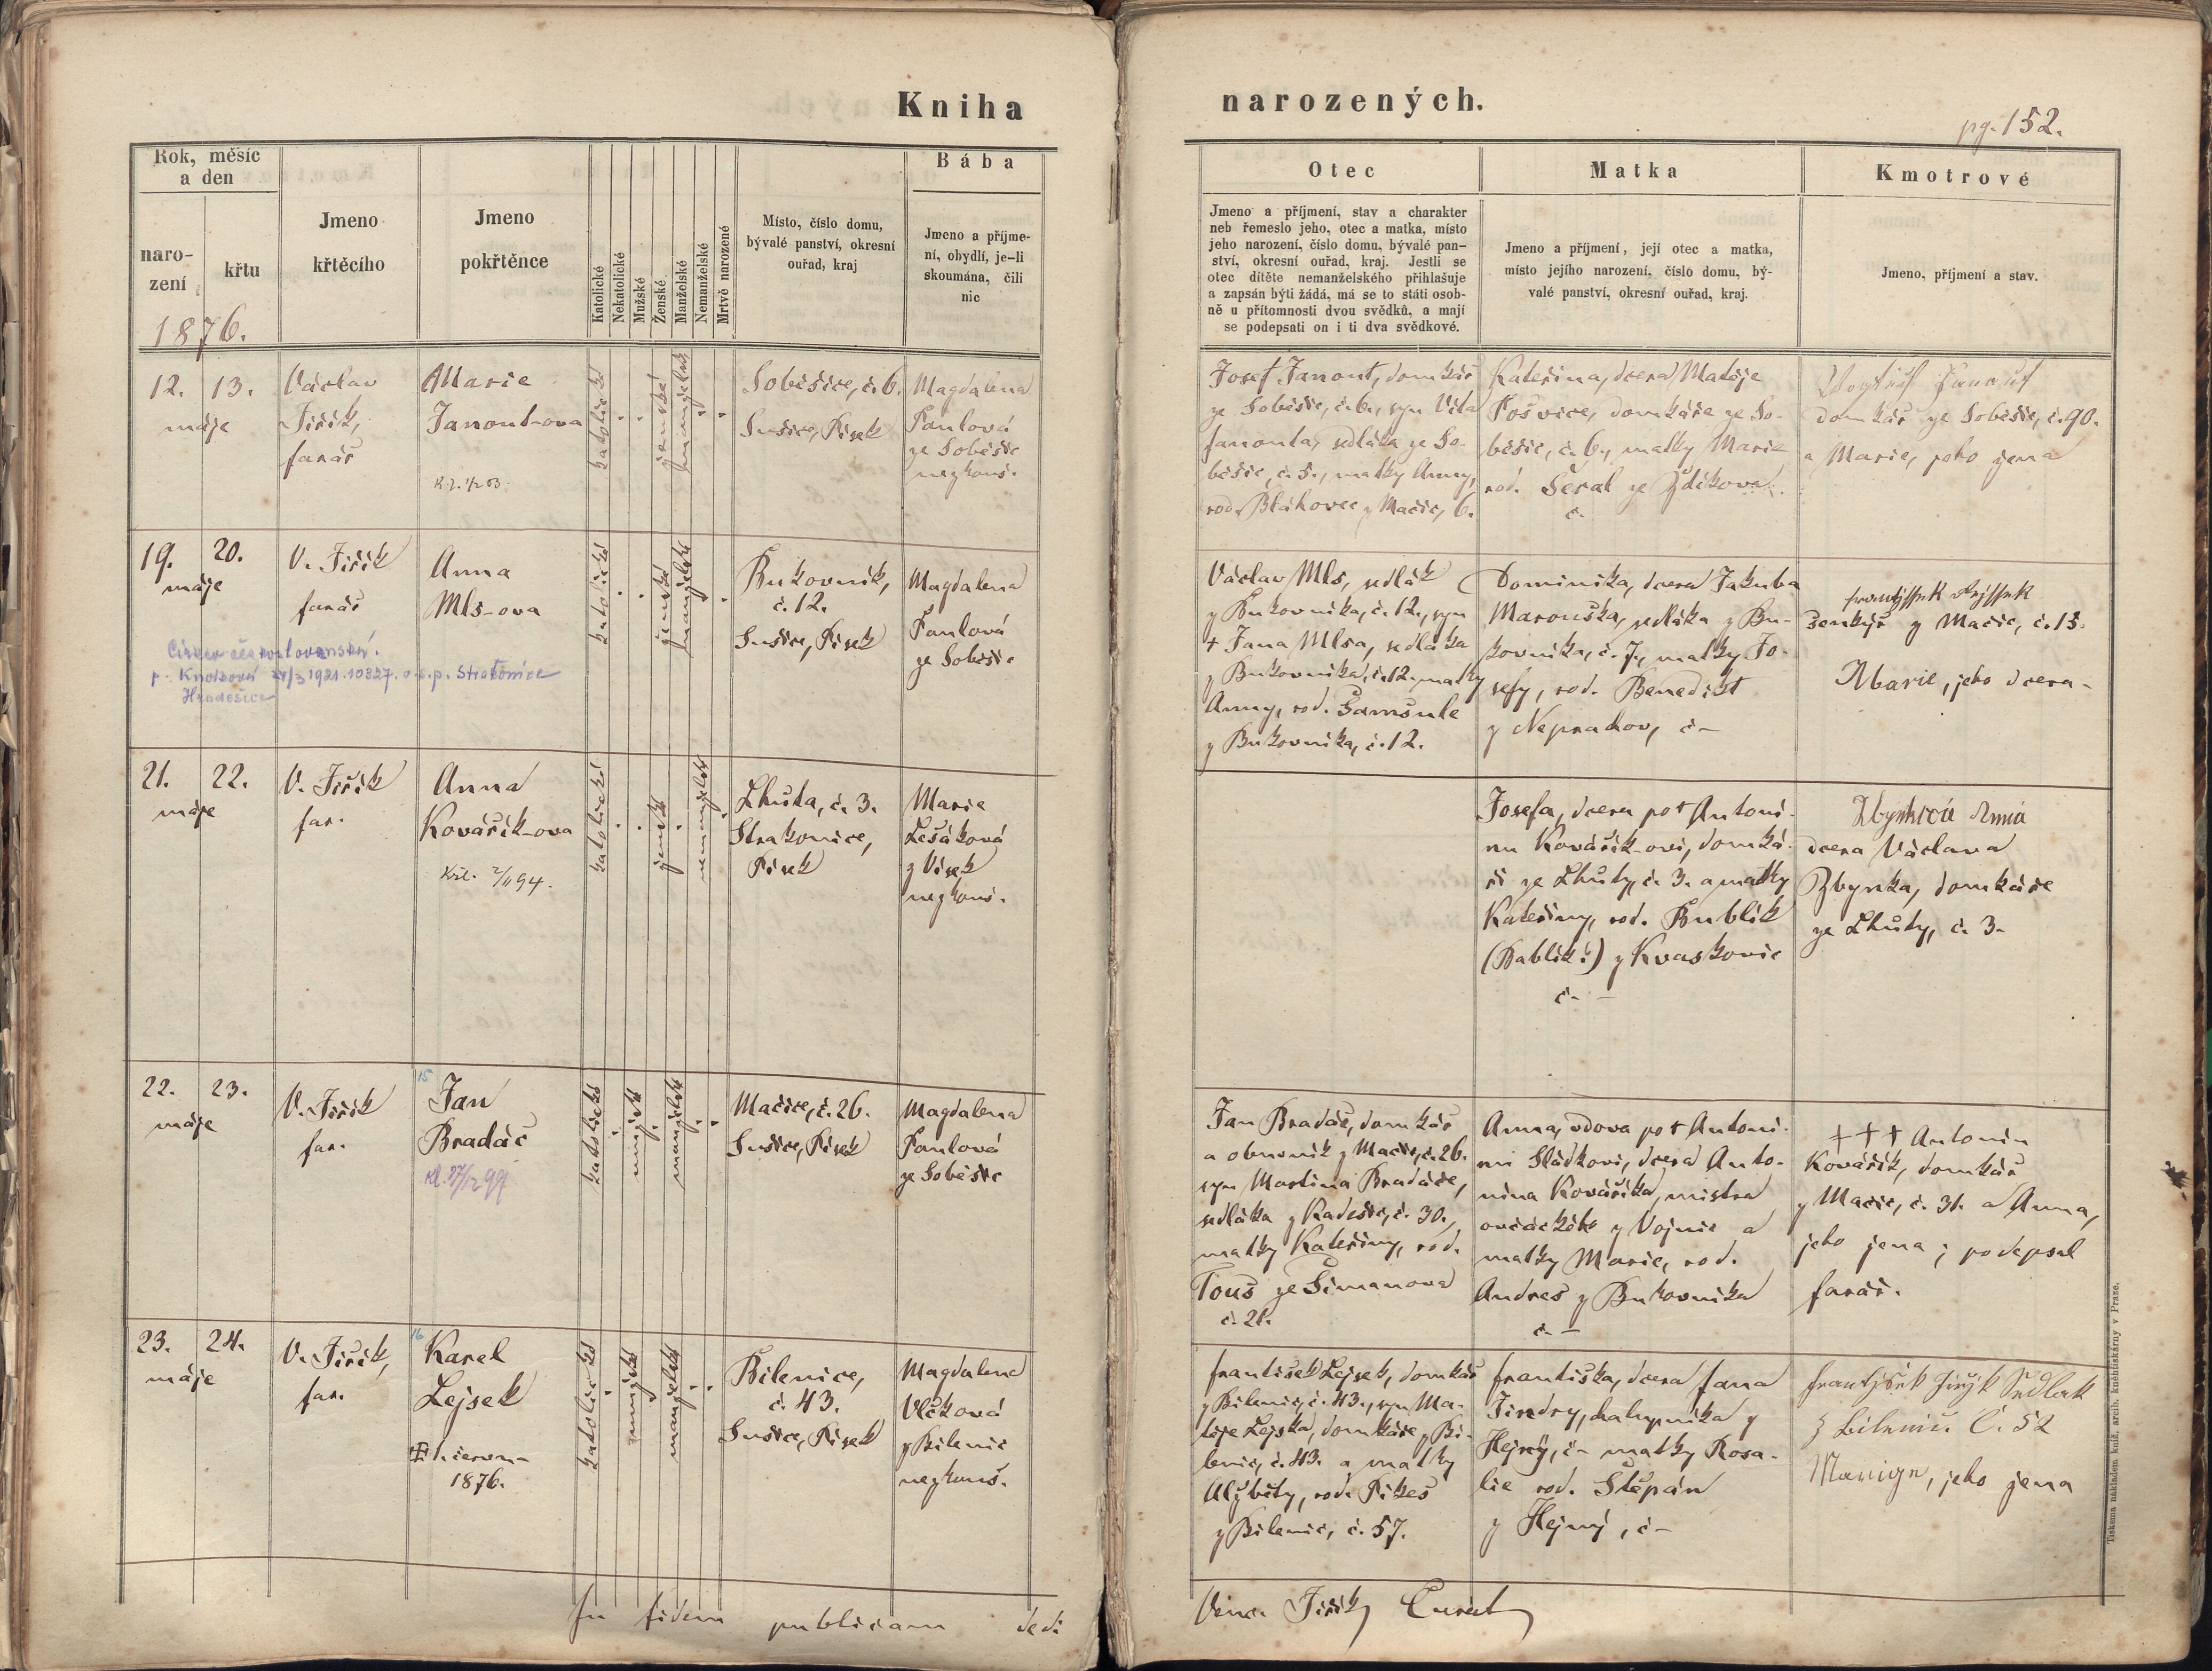 Kniha
narozených.
pg. 152.
Rok, měsíc
a den
naro-
zení
křtu
1876.
Jmeno
křtěcího
Jmeno
pokřtěnce
Katolické
Nekatolické
Mužské
Ženské
Manželské
Nemanželské
Mrtvě narozené
Místo, číslo domu,
bývalé panství, okresní
ouřad, kraj
Bába
Jmeno a příjme-
ní, obydlí, je-li
skoumána, čili
nic
Otec
Jmeno a příjmení, stav a charakter
neb řemeslo jeho, otec a matka, místo
jeho narození, číslo domu, bývalé pan-
ství, okresní ouřad, kraj. Jestli se
otec dítěte nemanželského přihlašuje
a zapsán býti žádá, má se to státi osob-
ně u přítomnosti dvou svědků, a mají
se podepsati on i ti dva svědkové.
Matka
Jmeno a příjmení, její otec a matka,
místo jejího narození, číslo domu, bý-
valé panství, okresní ouřad, kraj.
Kmotrové
Jmeno, příjmení a stav.
12. 13.
máje
Václav
Jiřík,
farář
Marie
Janout-ova
katolické
ženské
manželské
Soběšice, č. 6.
Sušice, Písek
Magdalena
Pavlová
ze Soběšic
nezkouš.
Josef Janout, domkář
ze Soběšic, č. 6., syn Víta
Janouta, sedláka ze So-
běšic, č. 5., matky Anny,
rod. Bláhovec z Mačic, 6.
Kateřina, dcera Matěje
Pošvice, domkáře ze So-
běšic, č. 6., matky Marie
rod. Šeral ze Zdíkova
č.
Janout
domkář ze Soběšic, č. 90.
a Marie, jeho žena
19. 20.
máje
V. Jiřík
farář
Anna
Mls-ova
katolické
ženské
manželské
Bukovník,
č. 12.
Sušice, Písek
Magdalena
Pavlová
ze Soběšic
Církev československá.
21/3 1921. 10327. o.s.p. Strakonice
Hradešice
Václav Mls, sedlák
z Bukovníka, č. 12., syn
+ Jana Mlsa, sedláka
z Bukovníka, č. 12. matky
Anny, rod. Samšule
z Bukovníka, č. 12.
Dominika, dcera Jakuba
Marouška, sedláka z Bu-
kovníka, č. 7., matky Jo-
sefy, rod. Benedikt
z Neprachov, č –
Frantjssek Rejssek
šenkýř z Mačic, č. 15.
Marie, jeho dcera -
21. 22.
máje
V. Jiřík
far.
Anna
Kovářík-ova
7/11 94.
katolické
ženské
nemanželské
Lhuta, č. 3.
Strakonice,
Písek
Marie
Lešáková
z Vísek
nezkouš.
Josefa, dcera po + Antoní-
nu Kovářík-ovi, domká-
ři ze Lhuty, č. 3. a matky
Kateřiny, rod. Bublík
(Bablík?) z Kvaskovic
č. –
Zbynková Anna
dcera Václava
Zbynka, domkáře
ze Lhuty, č. 3.
22. 23.
máje
V. Jiřík
far.
15
Jan
Bradáč
27/12 99
katolické
mužské
manželské
Mačice, č. 26.
Sušice, Písek
Magdalena
Pavlová
ze Soběšic
Jan Bradáč, domkář
a obuvník z Mačic, č. 26.
syn Martina Bradáče,
sedláka z Kadešic, č. 30.,
matky Kateřiny, rod.
Touš ze Šimanova
č. 21.
Anna, vdova po + Antoní-
nu Sládkovi, dcera Anto-
nína Kováříka, mistra
ovčáckého z Vojnic a
matky Marie, rod.
Andres z Bukovníka
č. –
+ + + Antonín
Kovářík, domkář
z Mačic, č. 31. a Anna,
jeho žena; podepsal
farář.
23. 24.
máje
V. Jiřík,
far.
16
Karel
Lejsek
1. června
1876.
katolické
mužské
manželské
Bílenice,
č. 43.
Sušice, Písek
Magdalena
Vlčková
z Bílenic
nezkouš.
František Lejsek, domkář
z Bílenic, č. 43., syn Ma-
těje Lejska, domkáře z Bí-
lenic, č. 43. a matky
Alžběty, rod. Pikeš
z Bílenic, č. 57.
Františka, dcera Jana
Jindry, chalupníka z
Hejný, č – matky Rosa-
lie rod. Štěpán
z Hejný, č –
Frantjšek Jiřýk Sedlak
z Bilenic č. 52
Marige, jeho žena
In fidem publicam dedi
Venc. Jiřík, Curat
Tiskem a nákladem kníž. arcib. knihtiskárny v Praze.